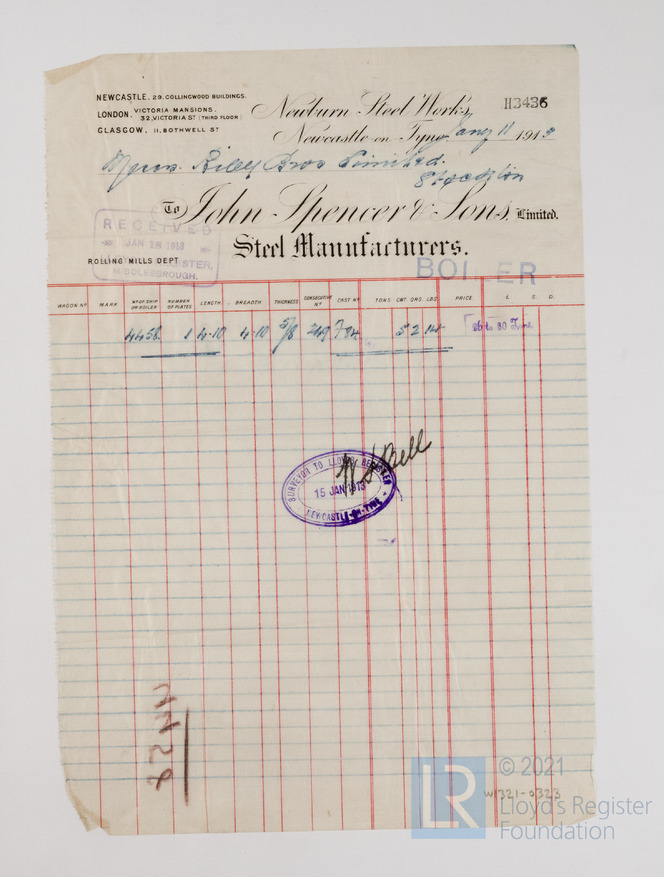 NEWCASTLE. 29, COLLINGWOOD BUILDINGS.
LONDON. VICTORIA MANSIONS.
32, VICTORIA ST (THIRD FLOOR)
GLASGOW. 11, BOTHWELL ST
Newburn Steel Works,
H3436
Newcastle on Tyne, Jany 11 1913
Messrs. Riley Bros Limited.
Stockton
To John Spencer & Sons, Limited.
Steel Manufacturers.
RECEIVED
JAN 1913
MIDDLESBROUGH.
ROLLING MILLS DEPT
BOILER
WAGON No MARK No OF SHIP OR BOILER NUMBER OF PLATES LENGTH. BREADTH. THICKNESS CONSECUTIVE No CAST No TONS CWT QRS. LBS. PRICE. £. S. D.
4458 1 4-10 4-10 5/8 5 2 14
W S Bell
SURVEYOR TO LLOYD'S REGISTER
15 JAN 1913
NEWCASTLE-ON-TYNE
LR
© 2021
W1321-0323
Lloyd's Register
Foundation